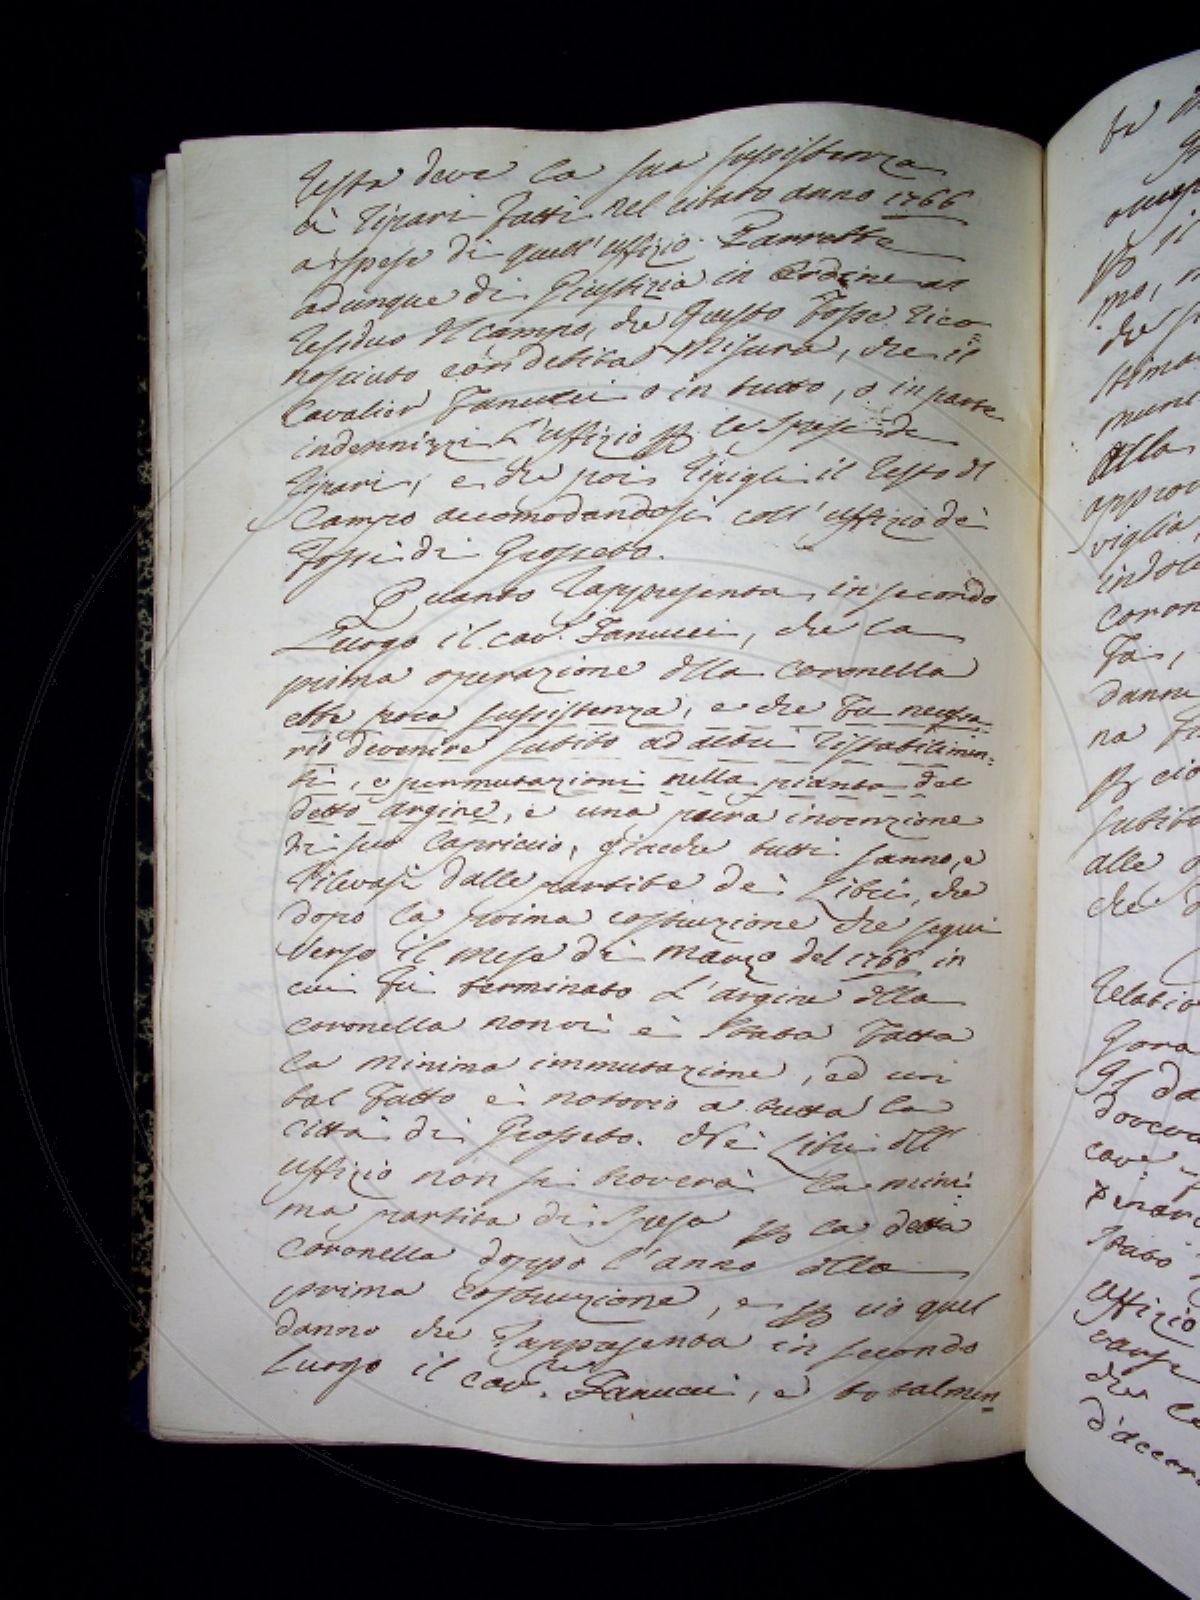 resta deve la sua sussistenza
ai ripari fatti nel citato anno 1766
a spese di quell'uffizio. Parrebbe
adunque di Giustizia in ordine al
residuo del campo, che questo fosse rico-
nosciuto con debita misura, che il
Cavalier Fanucci o in tutto, o in parte
indennizzi l'uffizio p le spese de
ripari, e che poi ripigli il resto del
Campo accomodandosi coll'uffizio de
Fossi di Grosseto.
Quanto rappresenta in secondo
Luogo il cav.r Fanucci, che la
prima operazione della coronella
ebbe poca sussistenza, e che fu necessa-
rio devenire subito ad altri ristabilimen-
ti, e permutazioni nella pianta del
detto argine, è una pura invenzione
di suo capriccio, giacche tutti sanno, e
rilevasi dalle partite dei Libri, che
dopo la prima costruzione che seguì
verso il mese di marzo del 1766 in
cui fù terminato l'argine della
coronella non vi è stata fatta
la minima immutazione, ed un
tal fatto è notorio a tutta la
città di Grosseto. Nei Libri dell'
uffizio non si troverà la mini-
ma partita di spesa p la detta
coronella doppo l'anno della
prima costruzione, e p ciò quel
danno che rappresenta in secondo
Luogo il cav.re Fanucci, è totalmen-
mo,
alla
viglia,
coron
fa,
danni
na
p cio
subito
alle
che
relatio
Gora
doveva
cav.e
stato
uffizio
d'accor